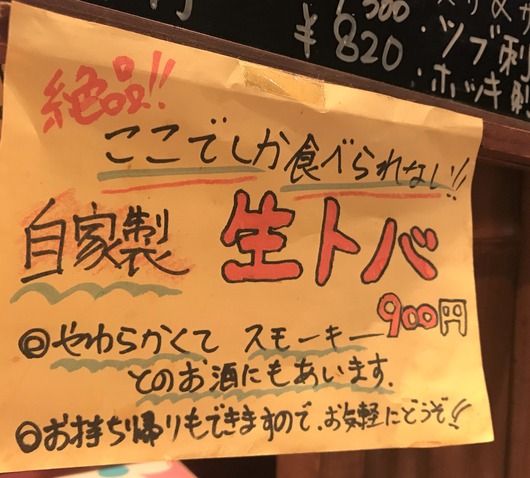 ¥820
・ツブ刺
・ホッキ刺
絶品!!
ここでしか食べられない!!
自家製 生トバ
900円
◎やわらかくて スモーキー
どのお酒にもあいます。
◎お持ち帰りもできますので、お気軽にどうぞ!!